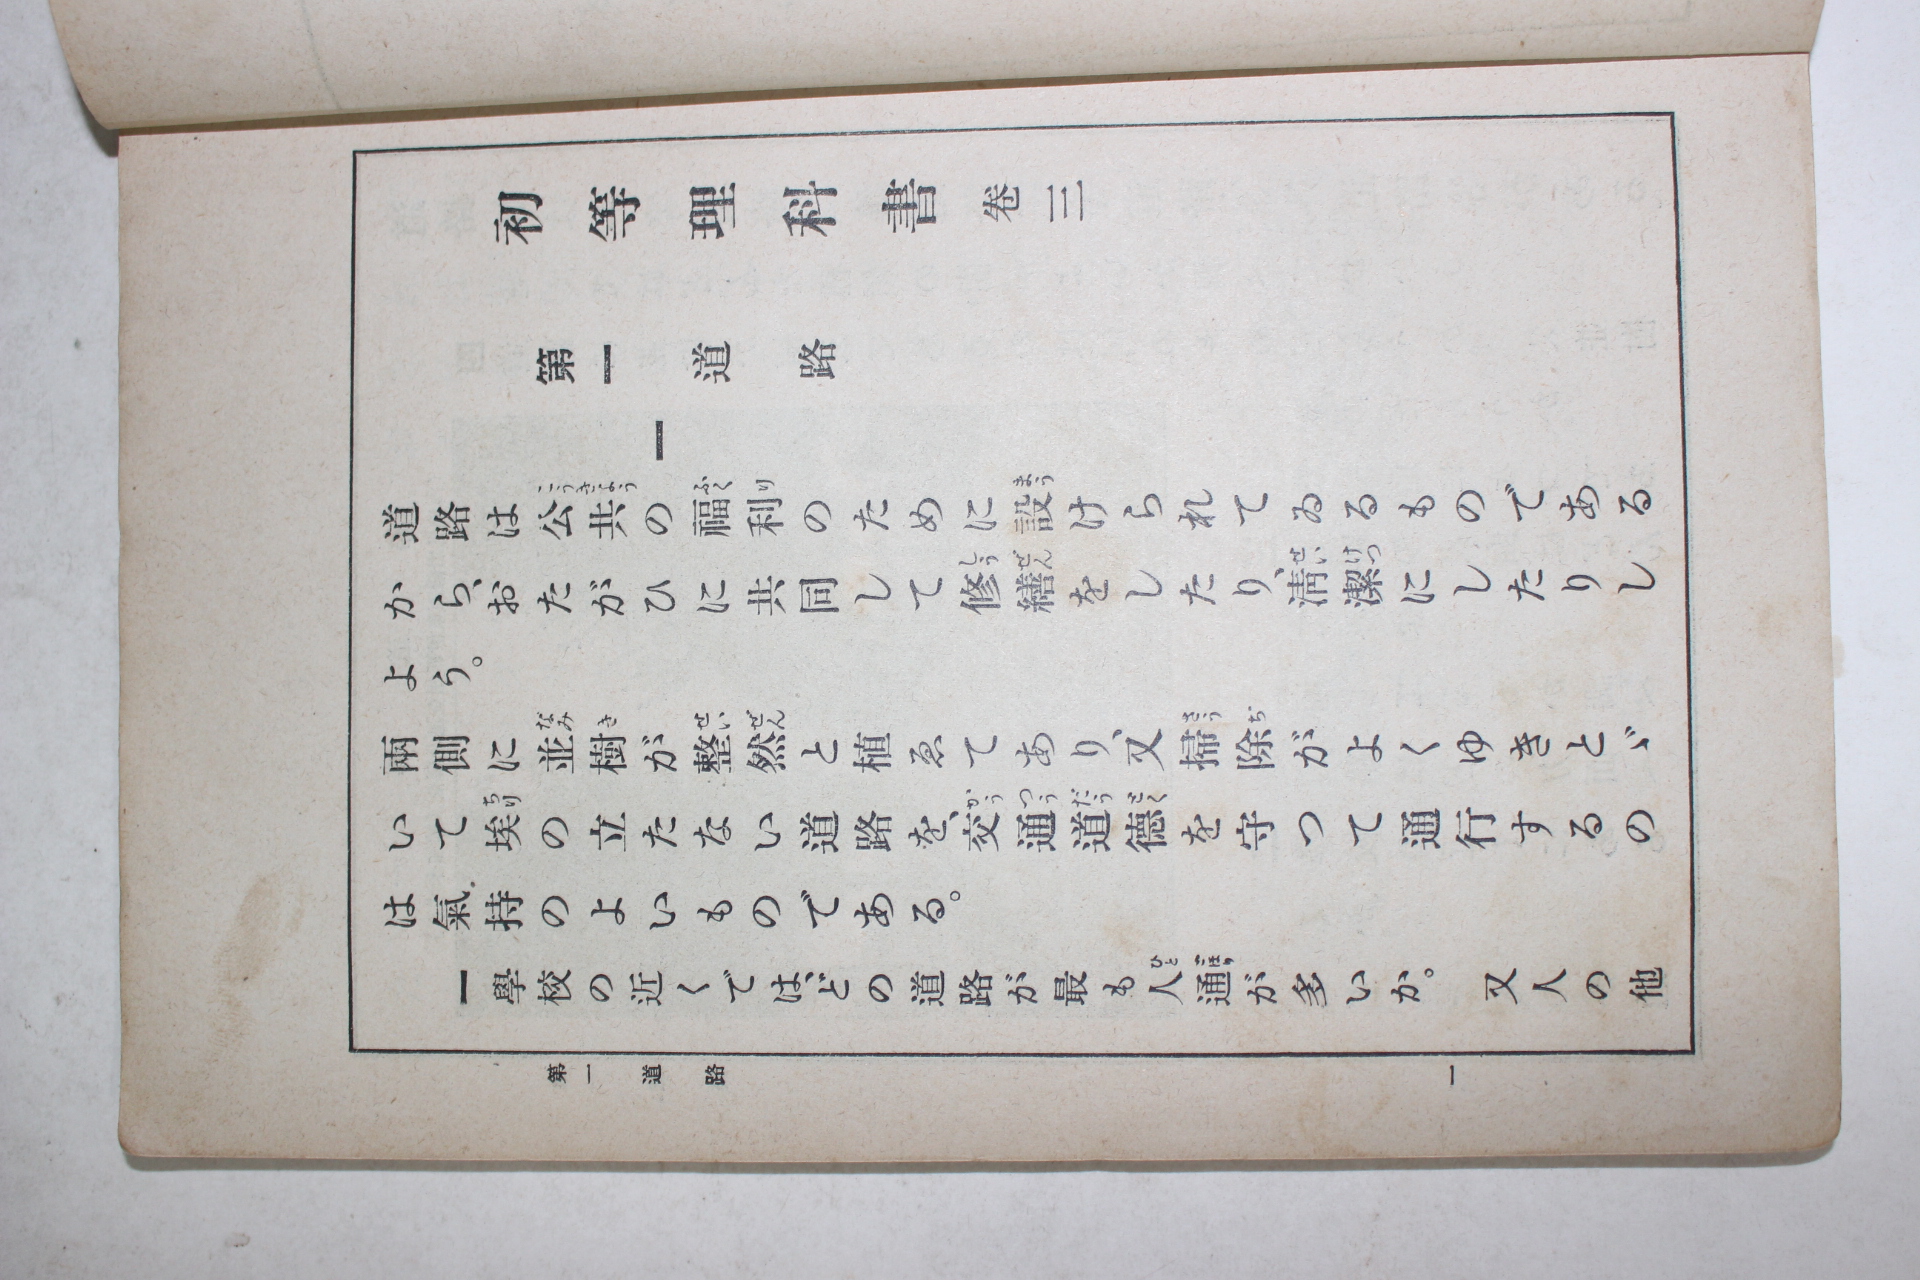 初等理科書 卷三
第一 道路
一
道路は公共の福利のために設けられてゐるものである
から、おたがひに共同して修繕をしたり、清潔にしたりし
よう。
兩側に並樹が整然と植ゑてあり、又掃除がよくゆきとゞ
いて埃の立たない道路を、交通道德を守つて通行するの
は氣持のよいものである。
一 學校の近くでは、どの道路が最も人通が多いか。 又人の他
第一 道路
一